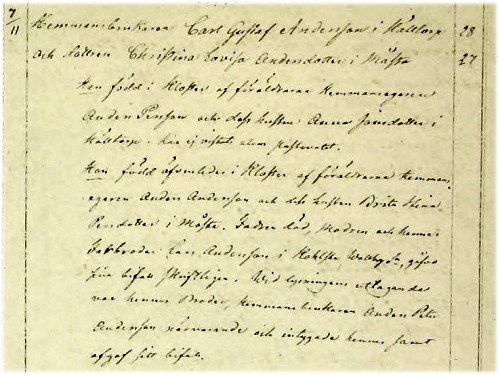 7/11 Hemmansbrukaren Carl Gustaf Andersson i Hålltorp 28
och dottren Christina Lovisa Andersdotter i Måsta 27
Han född i Kloster af föräldrarne Hemmansegaren
Anders Persson och dess hustru Anna Jansdotter i
Hålltorp. har ej vistats utom Pastoratet.
Hon född äfvenledes i Kloster af föräldrarne Hemmans-
egaren Anders Andersson och dess hustru Brita Stina
Persdotter i Måsta. Fadren död, Modren och hennes
Farbroder Lars Andersson i gifvit
sina bifall skriftligen. Wid lysningens uttagande
var hennes Broder, Hemmansbrukaren Anders Petter
Andersson närvarande och intygade hennes samt
afgaf sitt bifall.